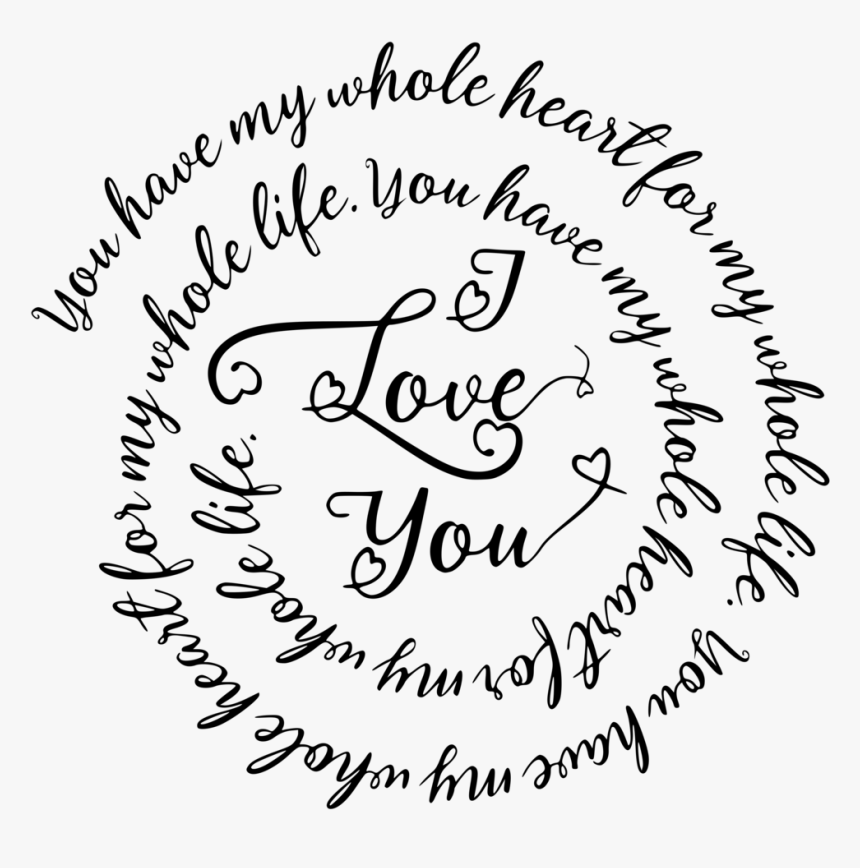 You have my whole heart for my whole life. You have my whole heart for my whole life. You have my whole heart for my whole life.
I
Love
You